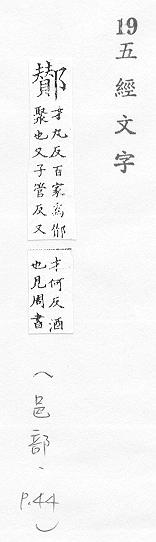 19 五經文字
酇
才丸反百家爲酇
聚也又子管反又
才何反酒
也見周書
（邑部、p.44）